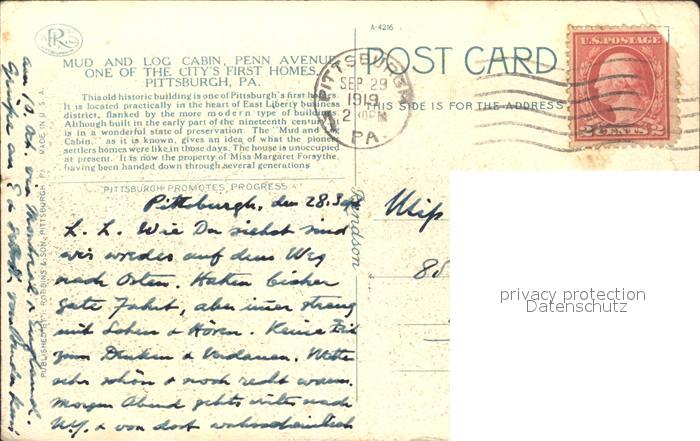 A-4216
MUD AND LOG CABIN, PENN AVENUE
ONE OF THE CITY'S FIRST HOMES,
PITTSBURGH, PA.
This old historic building is one of Pittsburgh's first homes.
It is located practically in the heart of East Liberty business
district, flanked by the more modern type of building.
Although built in the early part of the nineteenth century
is in a wonderful state of preservation. The "Mud and Log
Cabin," as it is known, gives an idea of what the pioneer
settlers homes were like in those days. The house is unoccupied
at present. It is now the property of Miss Margaret Forsythe,
having been handed down through several generations
"PITTSBURGH PROMOTES PROGRESS"
POST CARD
THIS SIDE IS FOR THE ADDRESS
PITTSBURGH
SEP 29
PA
U.S. POSTAGE
2 CENTS 2
PUBLISHED BY I. ROBBINS & SON, PITTSBURGH, PA. MADE IN U.S.A.
Pittsburgh, den 28. Sept
L. L. Wie Du siehst sind
wir wieder auf dem Weg
nach Osten. Hatten bisher
gute Fahrt, aber immer streng
mit Sehen & Hören. Keine Zeit
zum Denken & Verdauen. Wetter
sehr schön & noch recht warm.
Morgen Abend gehts weiter nach
N.Y. & von dort wahrscheinlich
am 19. Okt. via Montreal n. England.
85
privacy protection
Datenschutz